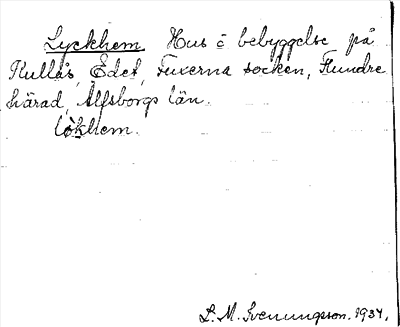 Lyckhem. Hus o bebyggelse på
Kullås, Edet, Fuxerna socken, Flundre
härad, Älfsborgs län.
lökhem.
S. M. Svenungsson. 1934.